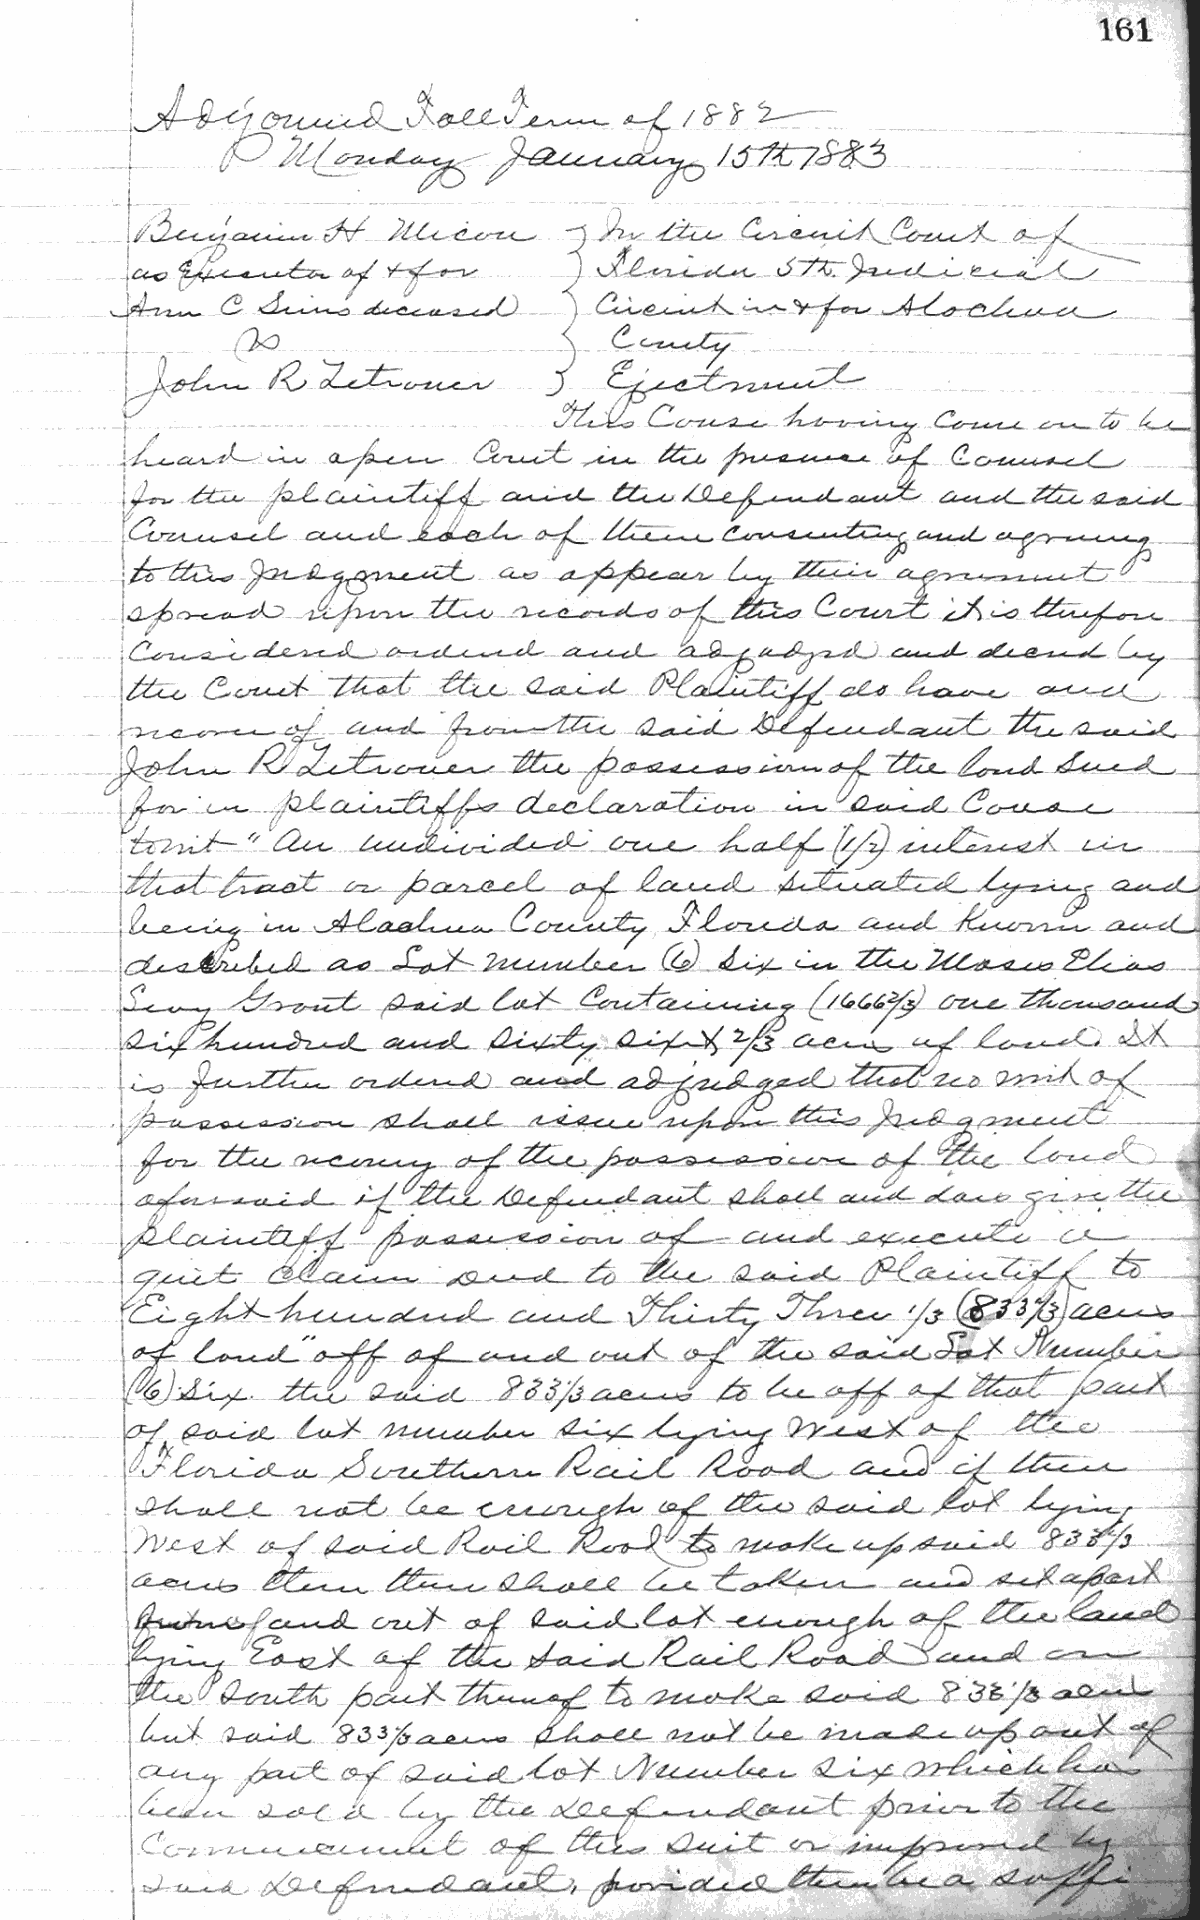 161
Adjourned Fall Term of 1882
Monday January 15th 1883
Benjamin H Micou } In the Circuit Court of
as Executor of & for } Florida 5th Judicial
Ann C Sims deceased } Circuit in & for Alachua
vs } County
John R Zetrouer } Ejectment
This Cause having come on to be
heard in open Court in the presence of Counsel
for the plaintiff and the Defendant and the said
Counsel and each of them consenting and agreeing
to this Judgment as appear by their agreement
spread upon the records of this Court it is therefore
Considered ordered and adjudged and decreed by
the Court that the said Plaintiff do have and
recover of and from the said Defendant the said
John R Zetrouer the possession of the land Sued
for in plaintiffs declaration in said Cause
towit "An undivided one half (1/2) interest in
that tract or parcel of land situated lying and
being in Alachua County Florida and Known and
described as Lot number (6) Six in the Moses Elias
Levy Grant said lot Containing (1666 2/3) one thousand
six hundred and sixty six & 2/3 acres of land. It
is further ordered and adjudged that no writ of
possession shall issue upon this Judgment
for the recovery of the possession of the land
aforesaid if the Defendant shall and does give the
plaintiff possession of and execute a
quit claim Deed to the said Plaintiff to
Eight hundred and Thirty Three 1/3 (833 1/3) acres
of land" off of and out of the said Lot Number
(6) Six the said 833 1/3 acres to be off of that part
of said lot number six lying West of the
Florida Southern Rail Road and if there
shall not be enough of the said lot lying
West of said Rail Road to make up said 833 1/3
acres then there shall be taken and set apart
of and out of said lot enough of the land
lying East of the said Rail Road and on
the South part thereof to make said 833 1/3 acres
but said 833 1/3 acres shall not be made up out of
any part of said lot Number six which has
been sold by the Defendant prior to the
Commencement of this suit or improved by
said Defendant, provided there be a suffi